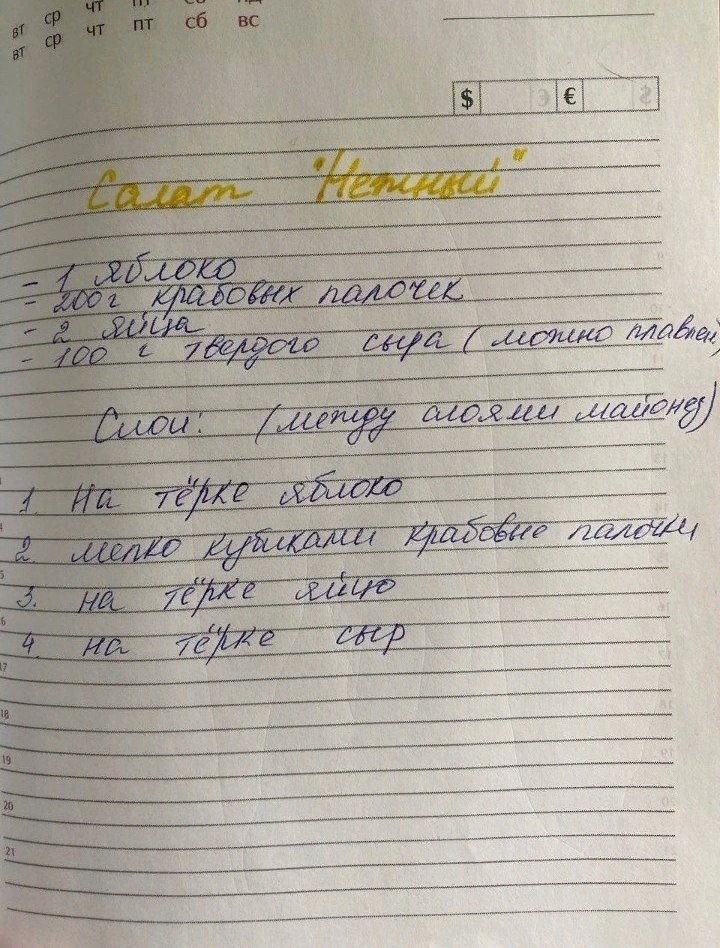 вт ср чт пт сб вс
вт ср чт пт сб вс
$ €
Салат "Нежный"
- 1 яблоко
- 200г крабовых палочек
- 2 яйца
- 100 г твердого сыра (можно плавлен)
Слои: (между слоями майонез)
1. На тёрке яблоко
2. мелко кубиками крабовые палочки
3. на тёрке яйцо
4. на тёрке сыр
17
18
19
20
21